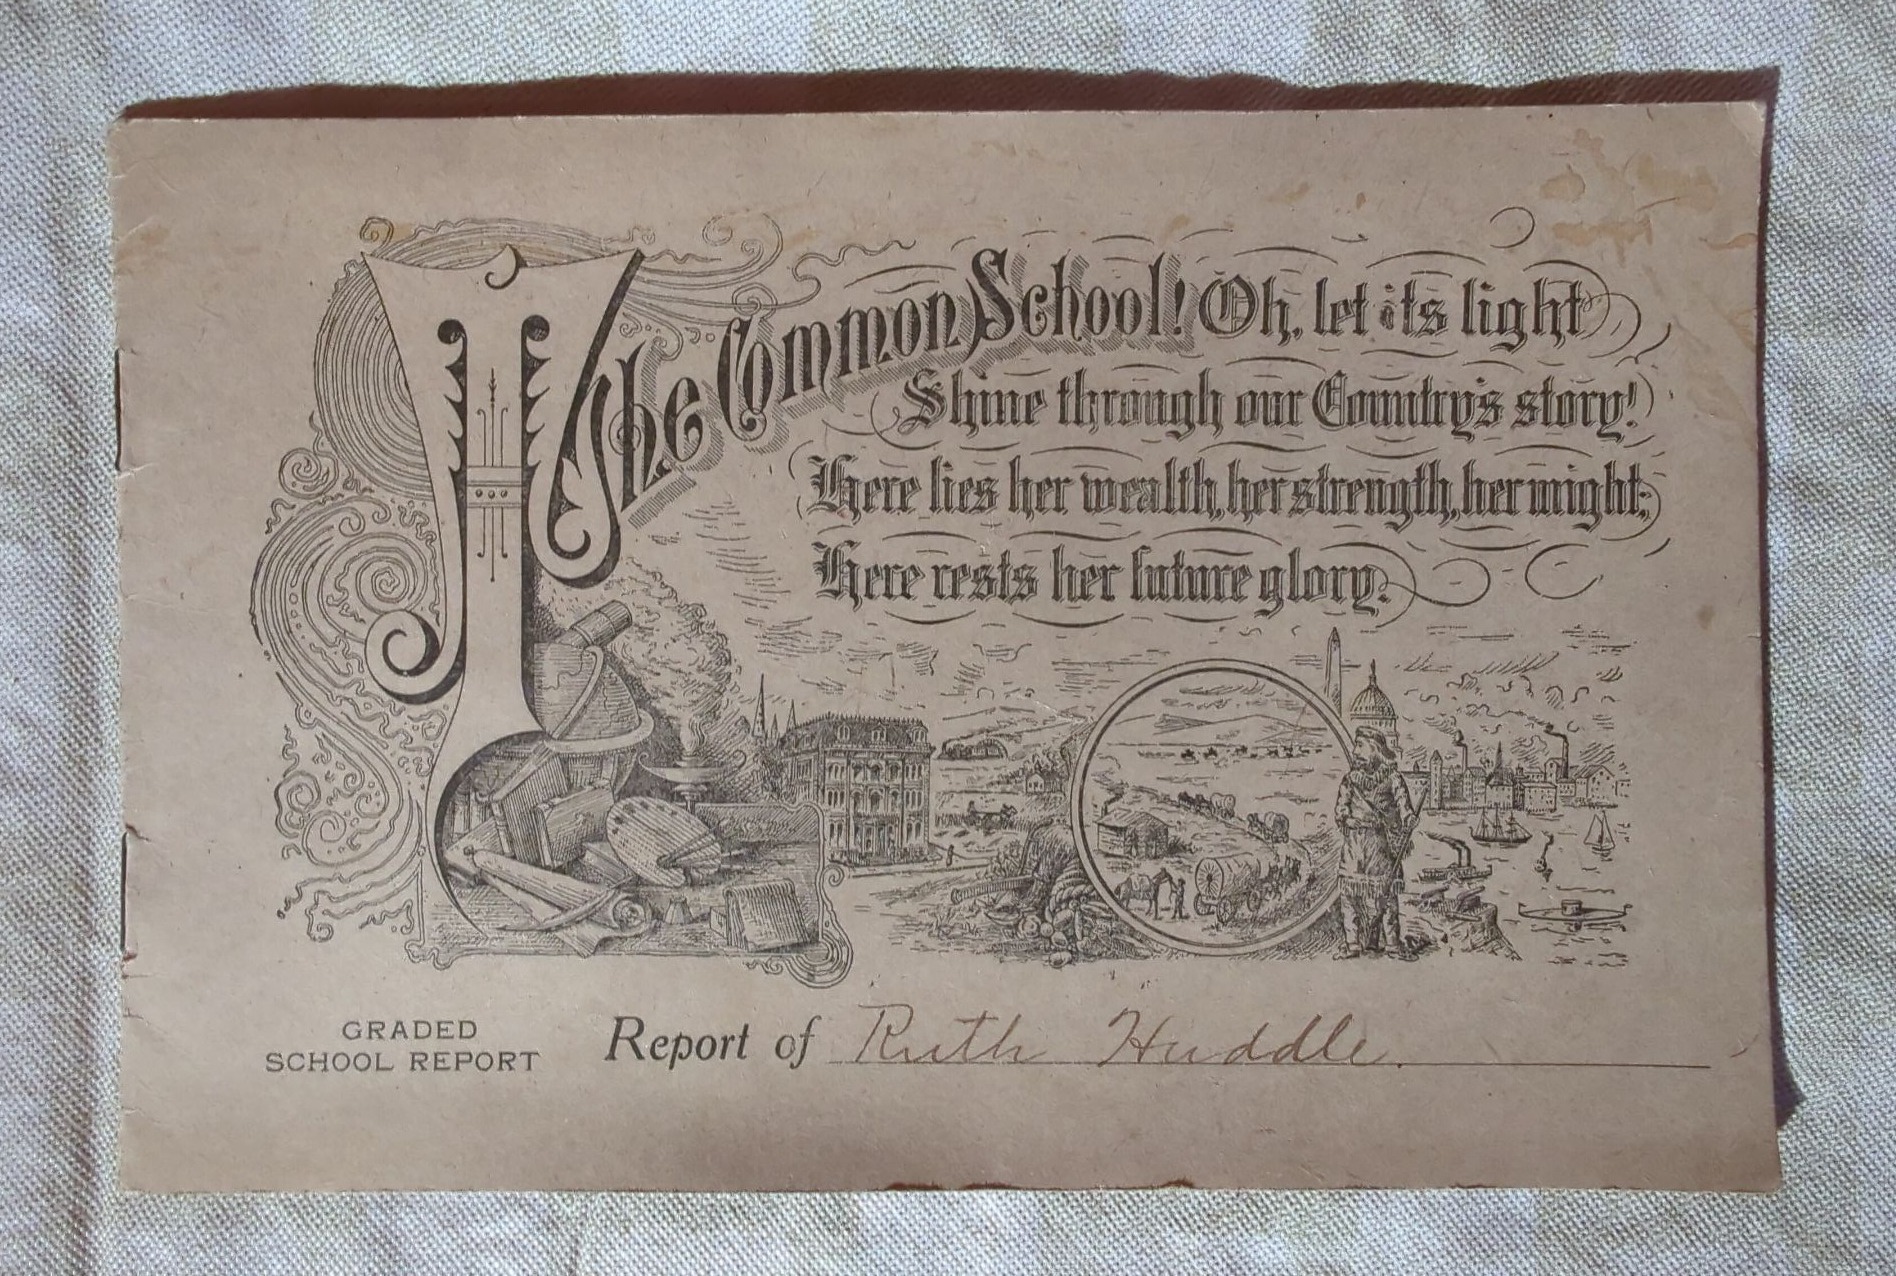 The Common School! Oh, let its light
Shine through our Country's story!
Here lies her wealth, her strength, her might;
Here rests her future glory.
GRADED
SCHOOL REPORT
Report of Ruth Huddle.